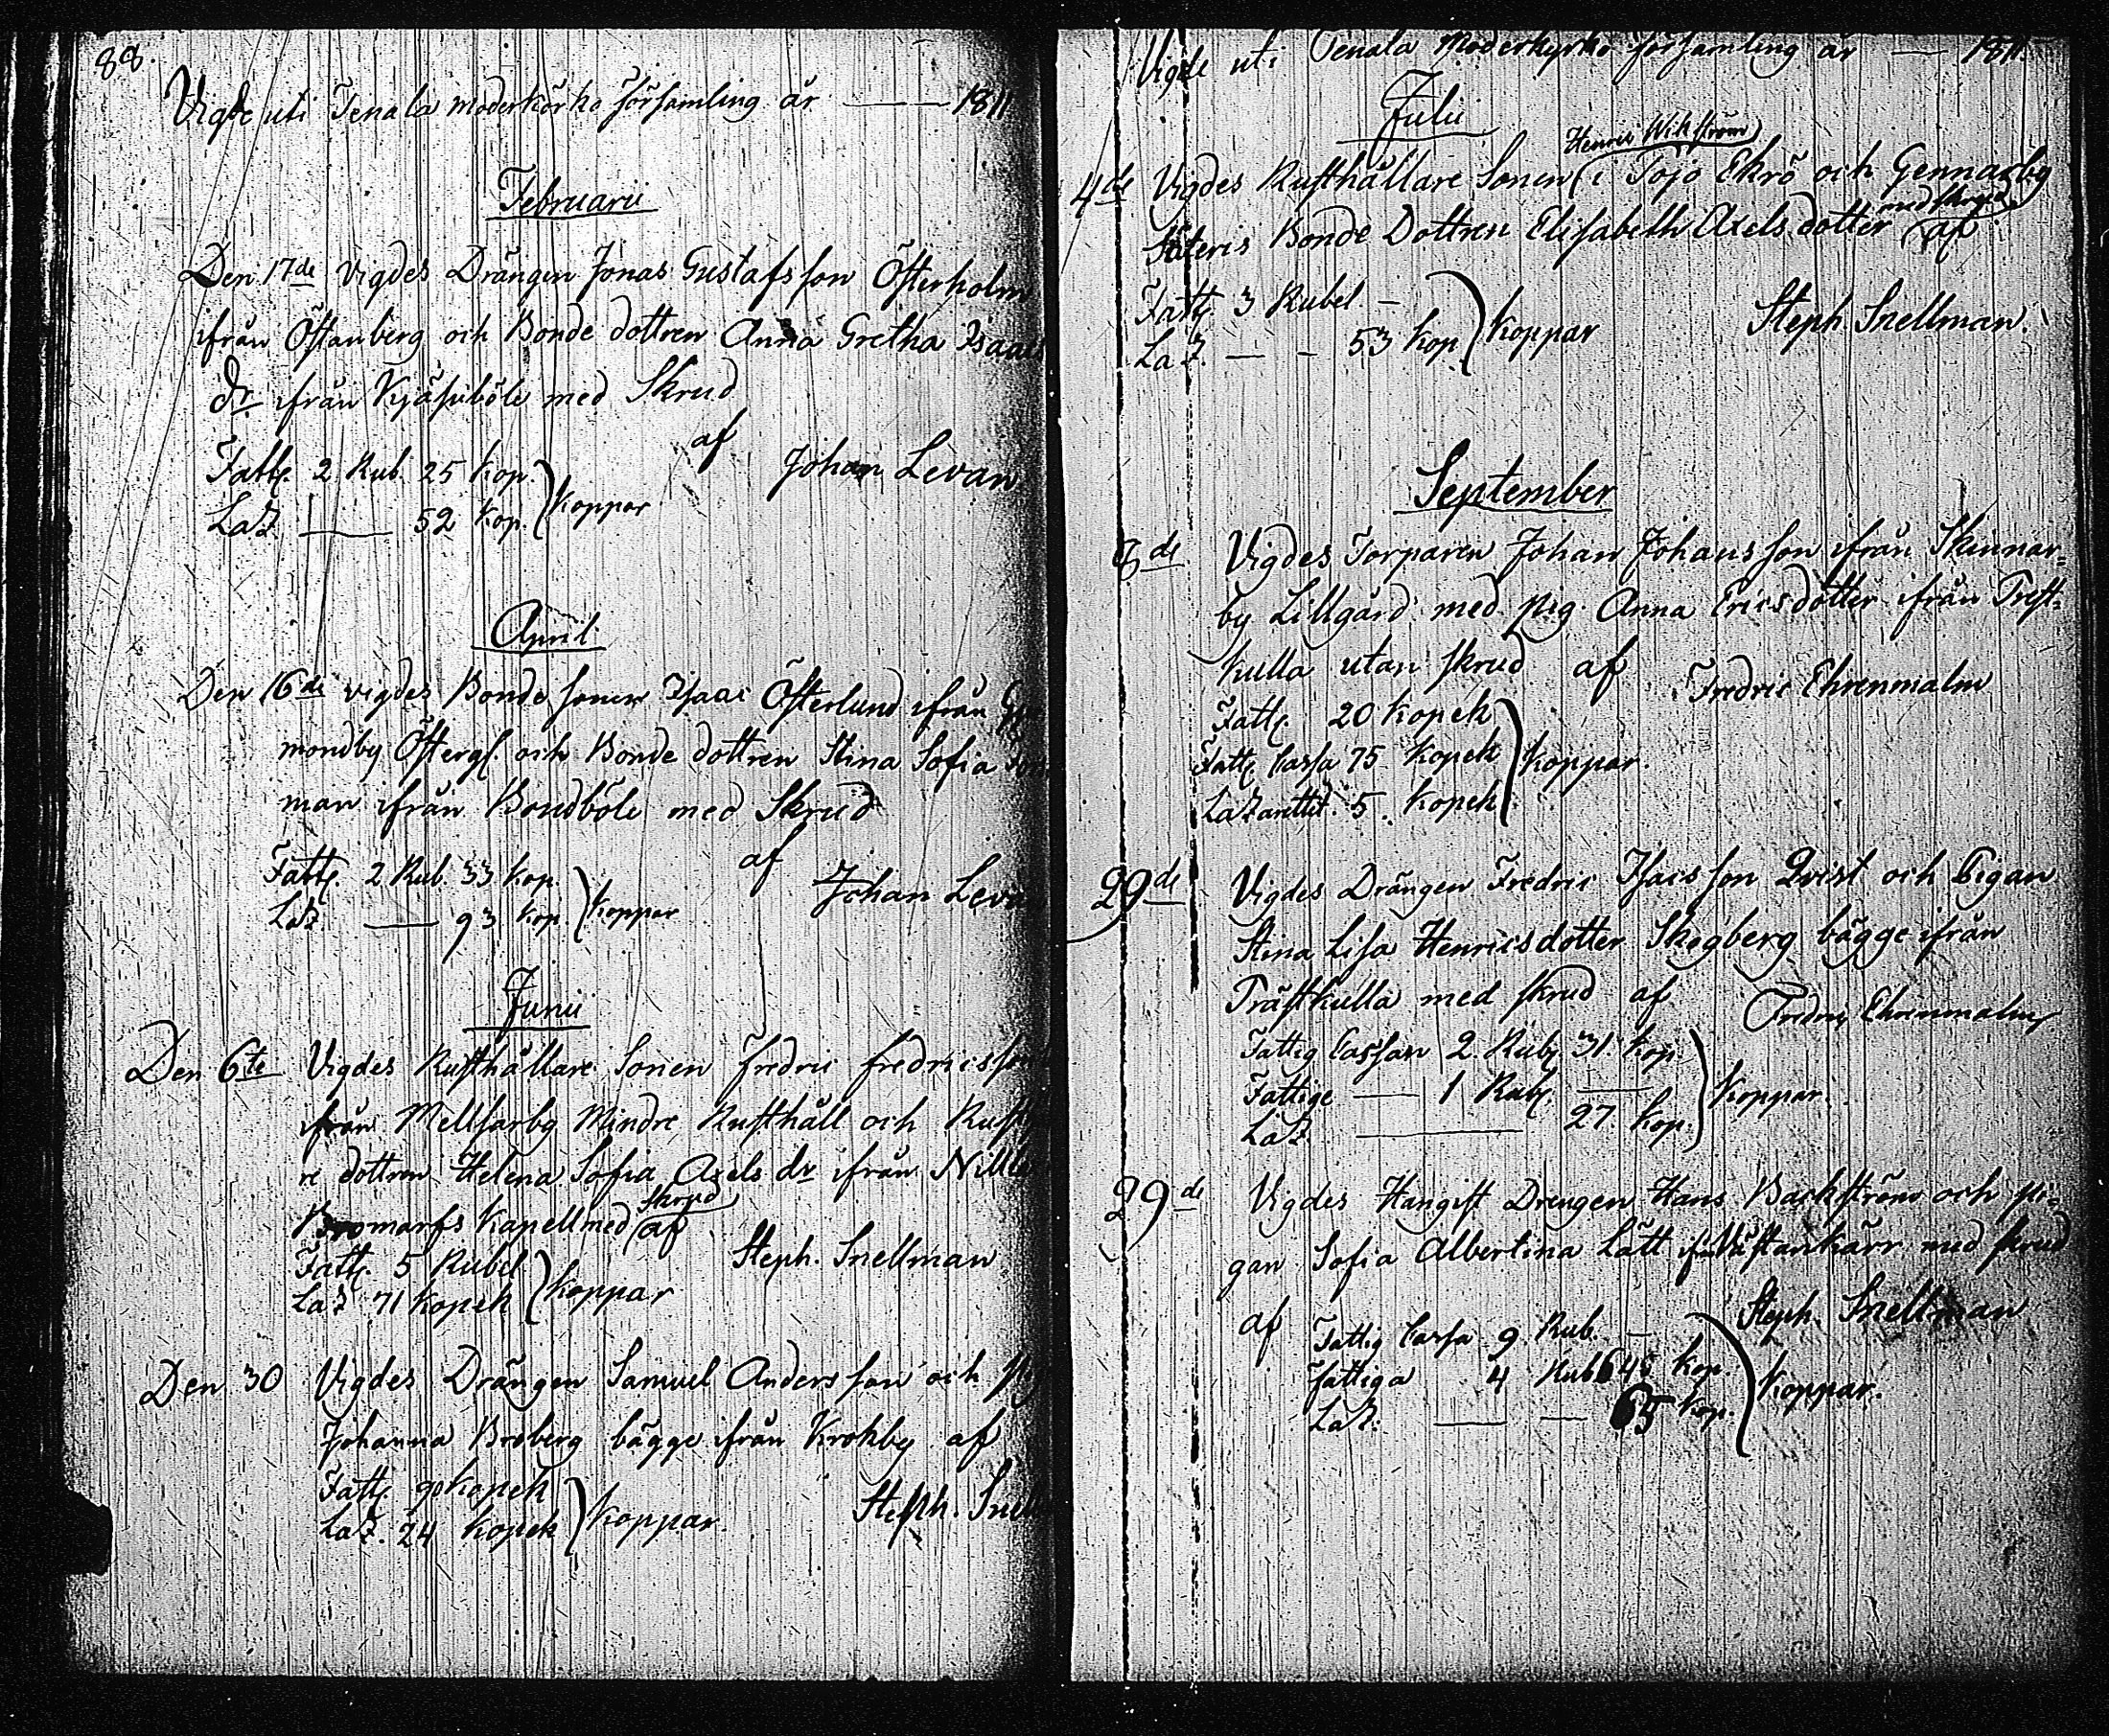 88.
Vigde uti Tenala moderkörko församling år —— 1811
Februarii
Den 17de Vigdes Drängen Jonas Gustafsson Österholm
ifrån Östanberg och Bonde dottren Anna Gretha Isaacs
dr ifrån Kjäpiböle med Skrud
af
Fattg. 2 Rub. 25 Kop.
Johan Levan
Laz —— 52 Kop. Koppar
April
Den 16de vigdes Bonde sonen Isaac Österlund ifrån
mondby Östergs. och Bonde dottren Stina Sofia
man ifrån Bondböle med Skrud
af
Fattg. 2 Rub. 33 Kop.
Johan Leva
Laz. —— 93 Kop. Koppar
Junii
Den 6te Vigdes Rusthållare Sonen Fredric Fredricsson
ifrån Mellsarby Mindre Rusthåll och Rust
re dottren Helena Sofia Axels dr ifrån
Bromarfs Kapell med skrud af
Fattg. 5 Rubel
Steph. Snellman
Laz 71 Kopek Koppar
Den 30 Vigdes Drängen Samuel Andersson och
Johanna Broberg bägge ifrån Krokby af
Fattg. 90 Kopek
Laz. 24 Kopek Koppar.
Steph. Snell
Vigde uti Tenala Moderkyrko församling år —— 1811.
Julii
Henric Wikström
4de Vigdes Rusthållare Sonen i Tojo Ekrö och Gennarby
Säteris Bonde Dottren Elisabeth Axelsdotter med skrud af
Fattg 3 Rubel —
Steph Snellman.
Laz. — — 53 Kop. Koppar
September
8de Vigdes Torparen Johan Johansson ifrån Skinnar-
by Lillgård med Pig. Anna Ericsdotter ifrån Prest-
kulla utan skrud af Fredric Ehrenmalm
Fattg. 20 Kopek
Fattg Cassa 75 Kopek Koppar.
Lazarettet. 5. Kopek
29de Vigdes Drängen Fredric Isacsson Qvist och Pigan
Stina Lisa Henricsdotter Skogberg bägge ifrån
Prästkulla med skrud af Fredric Ehrenmalm
Fattig Cassan 2. Rub. 31. Kop
Fattige — 1 Rub. — Koppar.
Laz. —— 27. Kop.
29de Vigdes Hangist Drengen Hans Backström och pi-
gan Sofia Albertina Lätt ifrån Västankärr med skrud
af Steph. Snellman
Fattig Cassa 9 Rub. —
Fattiga 4 Rub 46 Kop. Koppar.
Laz. — — 65 Kop.